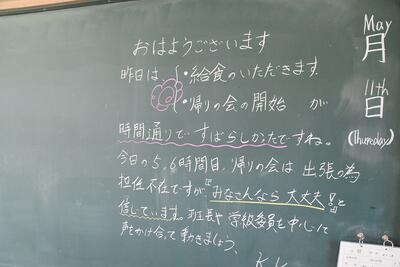 おはようございます
昨日は、・給食のいただきます
・帰りの会の開始 が
時間通りで すばらしかたですね。
今日の5,6時間目、帰りの会は 出張の為
担任不在ですが、「みなさんなら 大丈夫!」と
信じています。班長や 学級委員を中心に
声をかけ合って 動きましょう。
K.K
May
月
11th
日
(Thursday)